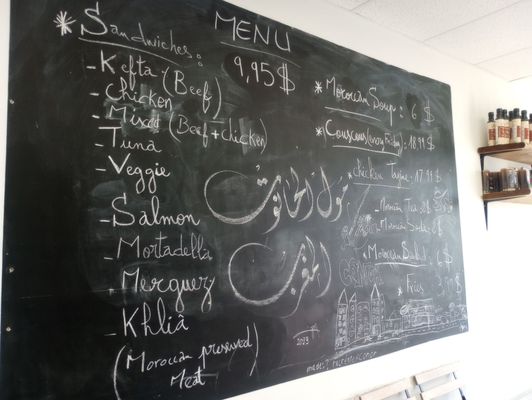 MENU
* Sandwiches:
9,95$
- Kefta (Beef)
- Chicken
- Mixte (Beef + chicken)
- Tuna
- Veggie
- Salmon
- Mortadella
- Merguez
- Khliâ
(Moroccan preserved
Meat
* Moroccan Soup: 6$
* Couscous (every Friday): 18.99$
* chicken Tajine 17.99$
مول الحانوت
المغرب
- Moroccan Tea
- Moroccan Soda
- Moroccan Salad: 6$
* Fries
2023